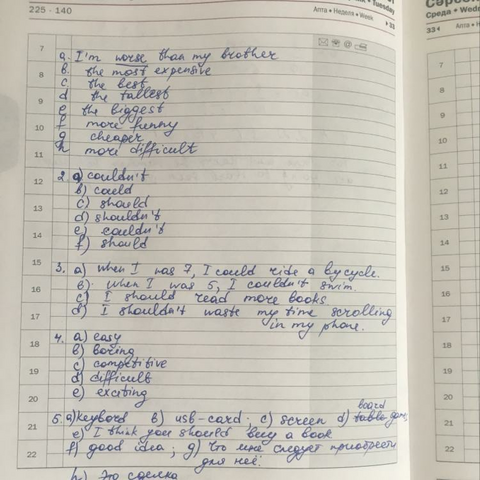 225 - 140
Апта • Неделя • Week
33
Tuesday
Среда • Wedn
33
7
8
9
10
11
12
13
14
15
16
17
18
19
20
21
22
a. I'm worse than my brother
b. the most expensive
c. the best
d. the tallest
e. the biggest
f. more funny
g. cheaper
h. more difficult
2. a) couldn't
b) could
c) should
d) shouldn't
e) couldn't
f) should
3. a) when I was 7, I could ride a bycycle.
b) when I was 5, I couldn't swim
c) I should read more books
d) I shouldn't waste my time scrolling
in my phone.
4. a) easy
b) boring
c) competitive
d) difficult
e) exciting
5. a) keybord b) usb-card; c) screen d) board game
e) I think you should buy a book
f) good idea; g) Что мне следует приобрести
для неё?
h) Это сделка
7
8
9
10
11
12
13
14
15
16
17
18
19
20
21
22